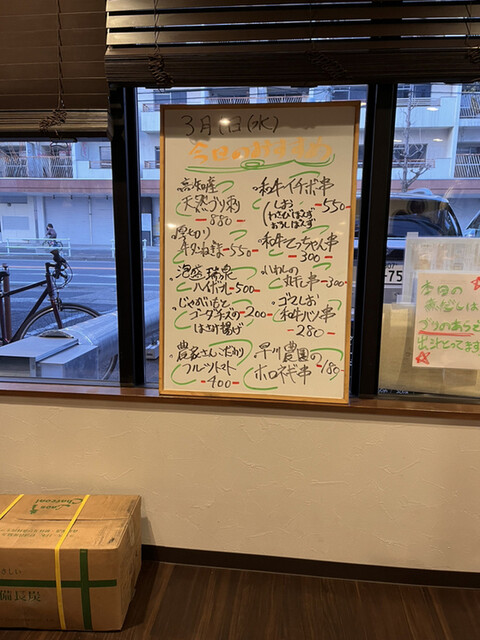 3月1日(水)
今日のおすすめ
高知産
天然ブリ刺
-880-
厚切り
-550-
泡盛 瑞泉
ハイボール-500-
じゃがいもと
ゴーダチーズの-200-
はさみ揚げ
農家さんこだわり
フルーツトマト
-400-
和牛イチボ串
しお
わさびはみず
おろしはみず
-550
和牛てっちゃん串
-300-
いわしの
串-300-
ゴマしお
和牛ハツ串
-280-
早川農園の
ホロネギ串
-180-
本日の
魚だしは
ブリのあらを
出汁とってます
Charcoal
備長炭
75